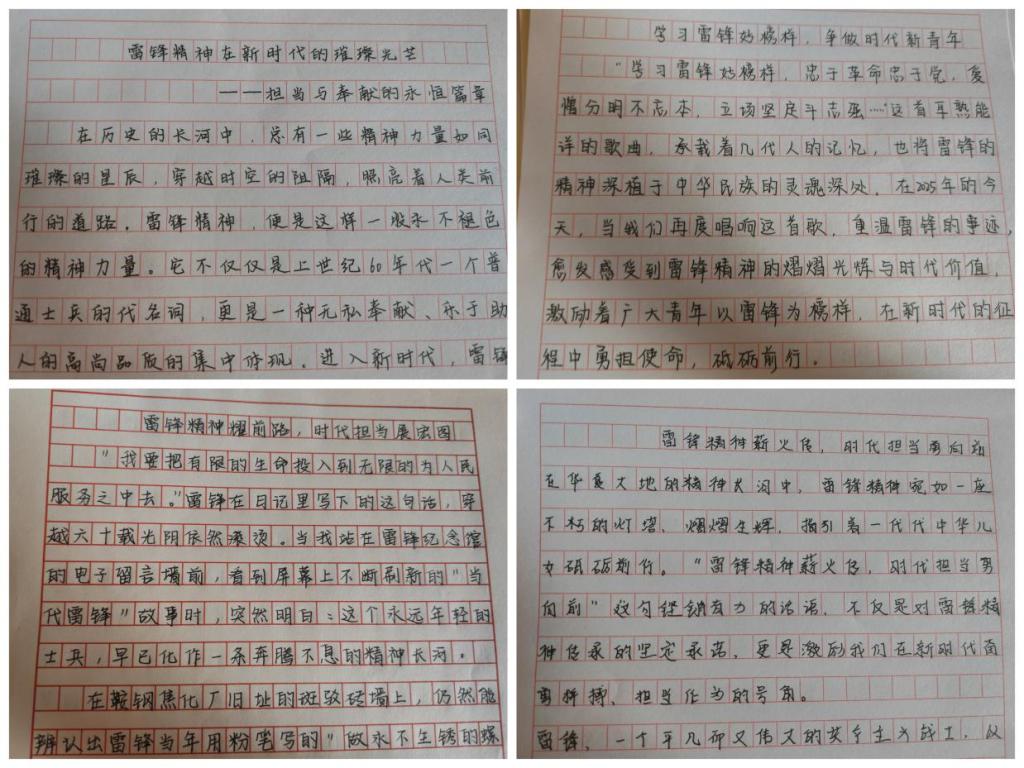 雷锋精神在新时代的璀璨光芒
——担当与奉献的永恒篇章
在历史的长河中，总有一些精神力量如同
璀璨的星辰，穿越时空的阻隔，照亮着人类前
行的道路。雷锋精神，便是这样一股永不褪色
的精神力量。它不仅仅是上世纪60年代一个普
通士兵的代名词，更是一种无私奉献、乐于助
人的高尚品质的集中体现。进入新时代，雷锋
学习雷锋好榜样，争做时代新青年
"学习雷锋好榜样，忠于革命忠于党，爱
憎分明不忘本，立场坚定斗志强……"这首耳熟能
详的歌曲，承载着几代人的记忆，也将雷锋的
精神深植于中华民族的灵魂深处。在2025年的今
天，当我们再度唱响这首歌，重温雷锋的事迹，
愈发感受到雷锋精神的熠熠光辉与时代价值，
激励着广大青年以雷锋为榜样，在新时代的征
程中勇担使命，砥砺前行。
雷锋精神耀前路，时代担当展宏图
"我要把有限的生命投入到无限的为人民
服务之中去。"雷锋在日记里写下的这句话，穿
越六十载光阴依然滚烫。当我站在雷锋纪念馆
的电子留言墙前，看到屏幕上不断刷新的"当
代雷锋"故事时，突然明白：这个永远年轻的
士兵，早已化作一条奔腾不息的精神长河。
在鞍钢焦化厂旧址的斑驳砖墙上，仍然能
辨认出雷锋当年用粉笔写的"做永不生锈的螺
雷锋精神薪火传，时代担当勇向前
在华夏大地的精神长河中，雷锋精神宛如一座
不朽的灯塔，熠熠生辉，指引着一代代中华儿
女砥砺前行。"雷锋精神薪火传，时代担当勇
向前"这句铿锵有力的话语，不仅是对雷锋精
神传承的坚定承诺，更是激励我们在新时代奋
勇拼搏、担当作为的号角。
雷锋，一个平凡而又伟大的共产主义战士，以